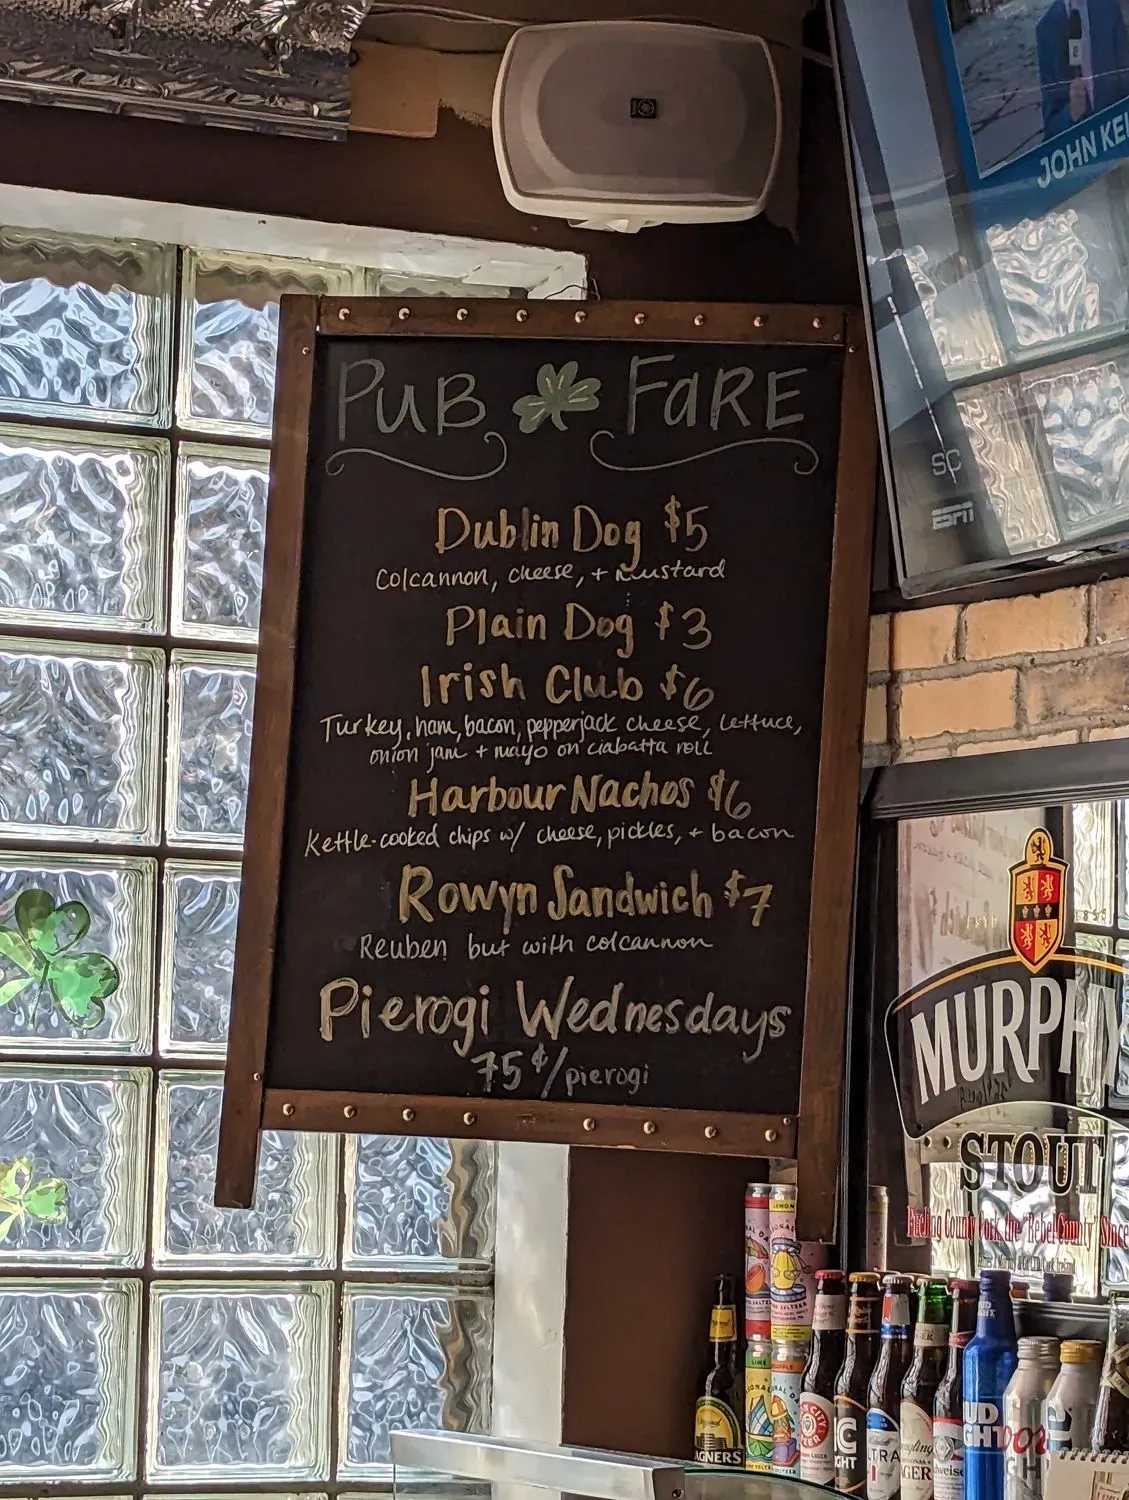 JOHN
SC
ESPN
PUB FARE
Dublin Dog $5
Colcannon, cheese, + mustard
Plain Dog $3
Irish Club $6
Turkey, ham, bacon, pepperjack cheese, lettuce,
onion jam + mayo on ciabatta roll
Harbour Nachos $6
Kettle-cooked chips w/ cheese, pickles, + bacon
Rowyn Sandwich $7
Reuben but with colcannon
Pierogi Wednesdays
75¢/pierogi
MURPHY
STOUT
LEMON
LIME
AGNERS
UD
GHT